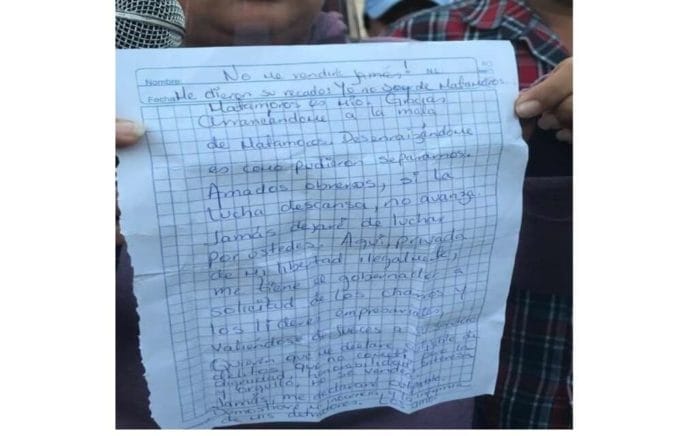 No me rendiré jamás!
Nombre
Fecha Me dieron su recado: Yo no soy de Matamoros.
Matamoros es mío. Gracias
Arrancándome a la mala
de Matamoros. Desenraizándome
es como pudieron separarnos.
Amados obreros, si la
lucha descansa, no avanza.
Jamás dejaré de luchar
por ustedes. Aquí, privada
de mi libertad ilegalmente,
me tiene el gobernador a
solicitud de los charros y
los líderes empresariales,
valiéndose de jueces a su
Quieren que me declare culpable de
delitos que no cometí. Por los
dignidad, honorabilidad, entereza
y orgullo, no se vende.
Jamás me declararé culpable.
Demostraré mi inocencia y la
de mis detractores. Los amo